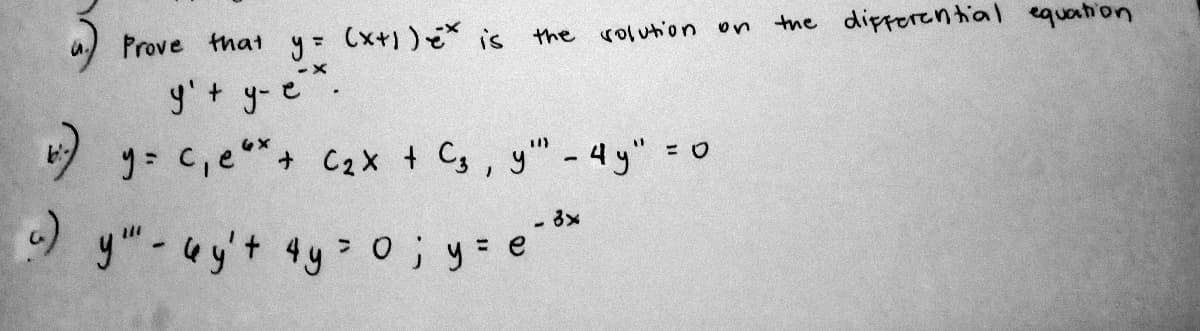 a.) Prove that y = (x+1)e^-x is the solution on the differential equation
y' + y - e^-x.
b.) y = C₁e^6x + C₂x + C₃, y''' - 4y'' = 0
c.) y''' - 6y' + 4y = 0 ; y = e^-3x